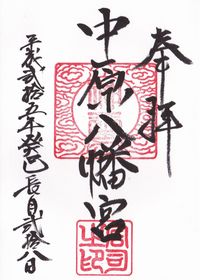 奉拝
中原八幡宮
平成弐拾五年癸巳長月弐拾八日